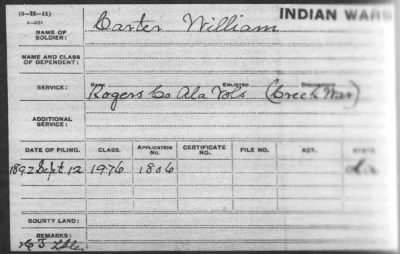 (3-35-11)
INDIAN WARS
NAME OF SOLDIER:
Carter William
NAME AND CLASS OF DEPENDENT:
SERVICE:
Rogers Co Ala Vols (Creek War)
ADDITIONAL SERVICE:
DATE OF FILING. CLASS. APPLICATION NO. CERTIFICATE NO. FILE NO. ACT. STATE.
1892 Sept 12 1976 1806
BOUNTY LAND:
REMARKS: